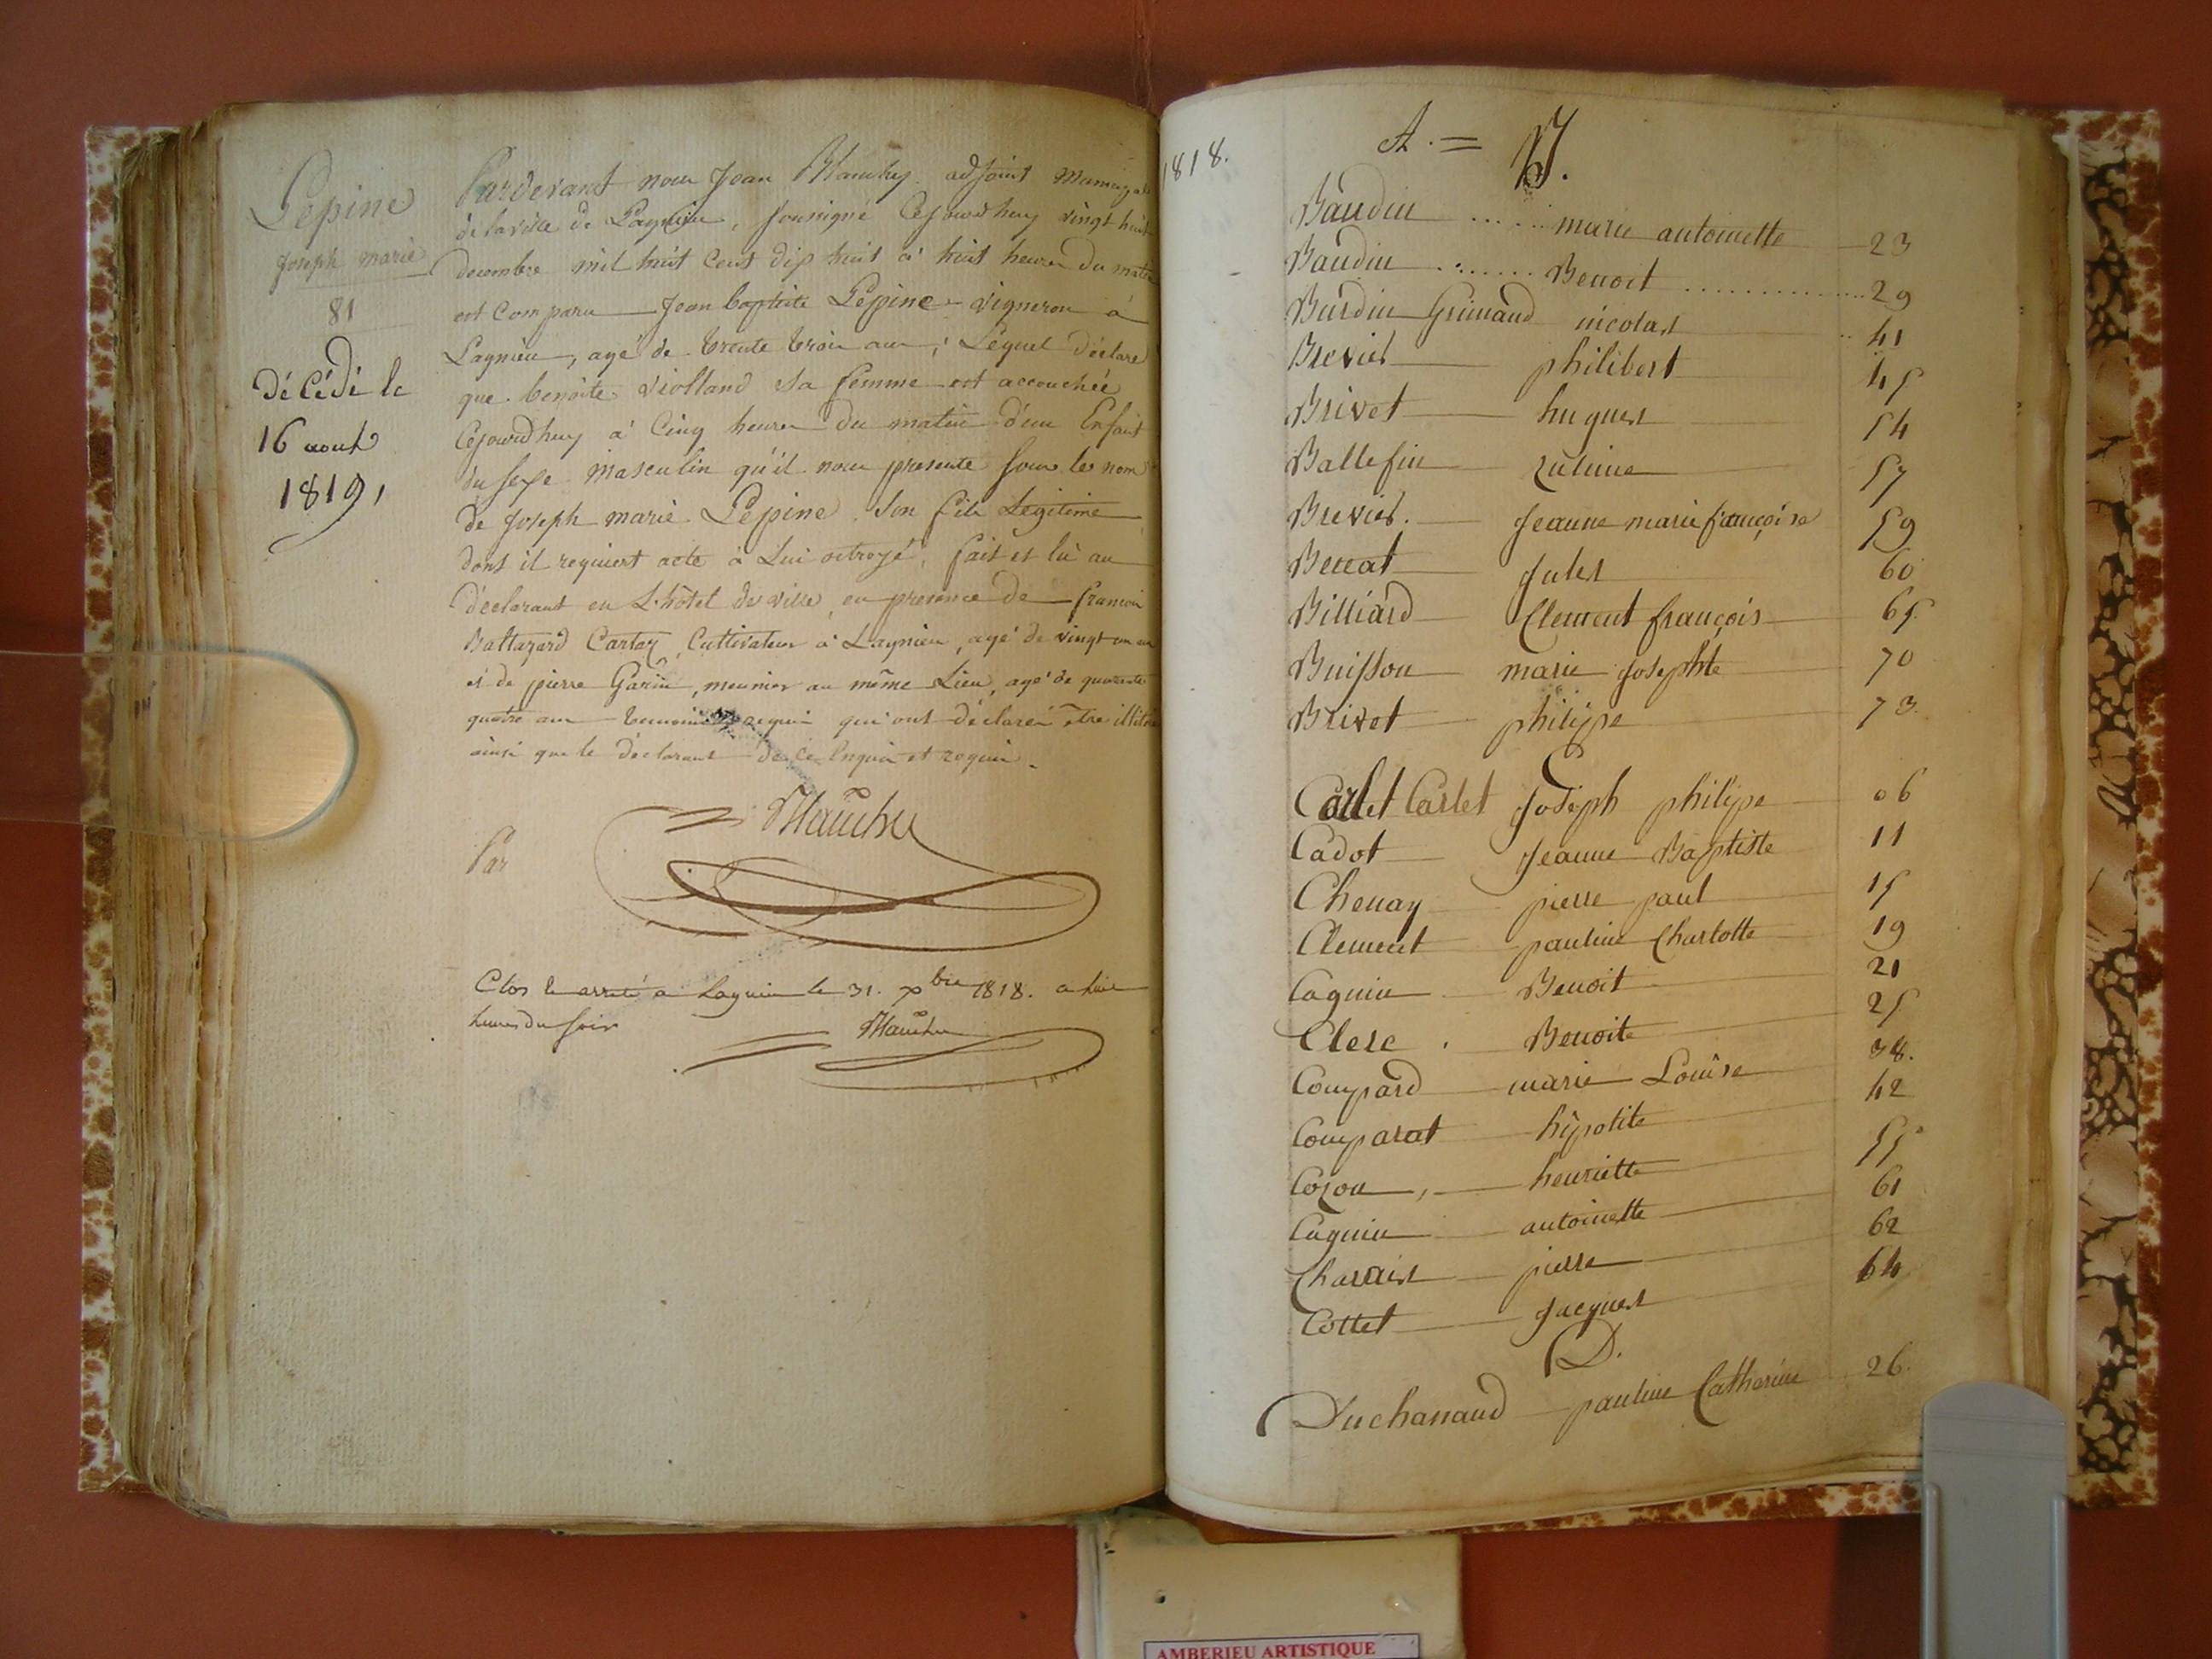 Lépine
Joseph marie
81
Décédé le
16 aout
1819,
Pardevant nous Jean Mauchy adjoint
de la ville de Lagnieu, soussigné Cejourdhuy vingt huit
decembre mil huit Cent dix huit à huit heures du matin
est Comparu Jean baptiste Lépine vigneron à
Lagnieu, agé de trente trois ans; Lequel déclare
que benoite violland sa femme est accouchée
Cejourdhuy à Cinq heures du matin d'un Enfant
du sexe masculin qu'il nous presente sous les nom
de Joseph marie Lépine son fils Légitime
dont il requiert acte à Lui octroyé, fait et lû au
déclarant en L'hôtel de ville, en presence de francois
Baltazard Cartaz, Cultivateur à Lagnieu, agé de vingt un ans
et de pierre Garin, meunier au même Lieu, agé de quarante
quatre ans temoins requis qui ont déclaré être illitérés
ainsi que le déclarant de ce Enquis et requis.
Mauchy
Par
Clos le arreté a Lagnieu le 31. xbre 1818. a huit
heures du soir
Mauchy
1818.
A. = B.
Baudin ...... marie antoinette 23
Baudin ....... Benoit .............. 29
Burdin Grimaud nicolas 41
Brevier philibert 45
Brivet hugues 54
Ballefin zulime 57
Brevier. Jeanne marie françoise 59
Jules 60
Billiard Clement françois 65
Buisson marie Josephte 70
Brivet philipe 73.
Carlet Carlet Joseph philipe 06
Cadot Jeanne Baptiste 11
Chenay pierre paul 15
Clement pauline Charlotte 19
Caquin Benoit 21
Clerc Benoite 25
Compard marie Louise 38.
Comparat hipolite 42
Cozon, henriette 55
Caquin antoinette 61
Charvis pierre 62
Cottet Jacques 64
D.
Duchanaud pauline Catherine 26.
AMBERIEU ARTISTIQUE